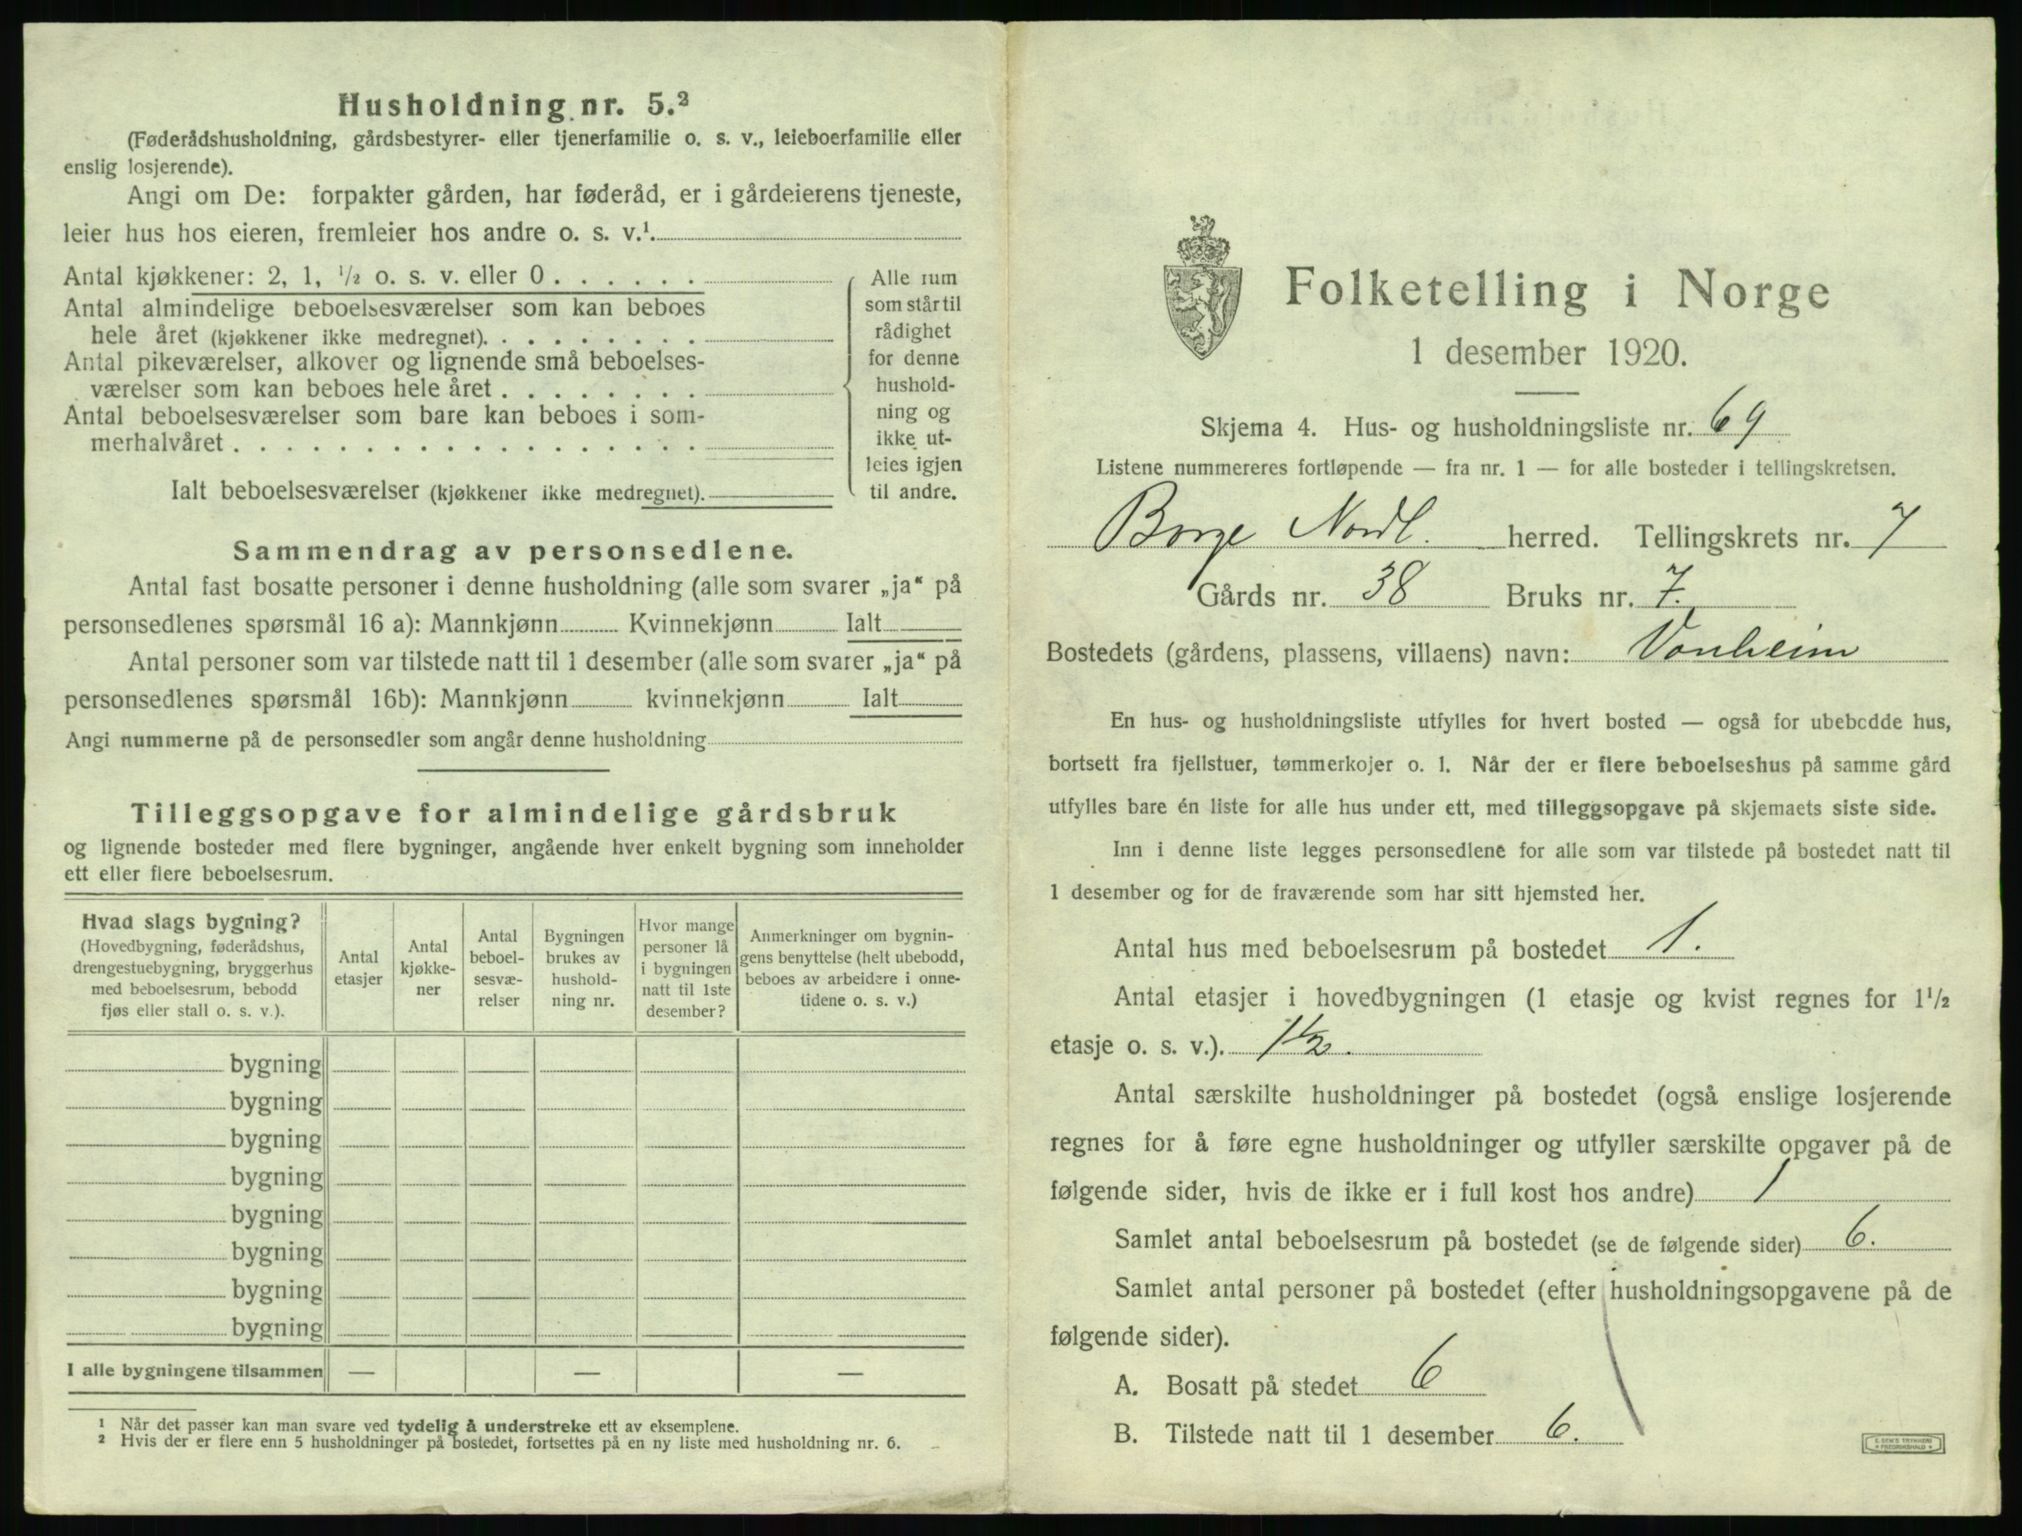 Husholdning nr. 5.²
(Føderådshusholdning, gårdsbestyrer- eller tjenerfamilie o. s. v., leieboerfamilie eller
enslig losjerende).
Angi om De: forpakter gården, har føderåd, er i gårdeierens tjeneste,
leier hus hos eieren, fremleier hos andre o. s. v.¹.
Antal kjøkkener: 2, 1, ½ o. s. v. eller 0 . . . . . .
Antal almindelige beboelsesværelser som kan beboes
hele året (kjøkkener ikke medregnet). . . . . . . . .
Antal pikeværelser, alkover og lignende små beboelses-
værelser som kan beboes hele året . . . . . . . .
Antal beboelsesværelser som bare kan beboes i som-
merhalvåret . . . . . . . . . . . . . . . . . .
Ialt beboelsesværelser (kjøkkener ikke medregnet).
Alle rum
som står til
rådighet
for denne
hushold-
ning og
ikke ut-
leies igjen
til andre.
Sammendrag av personsedlene.
Antal fast bosatte personer i denne husholdning (alle som svarer „ja“ på
personsedlenes spørsmål 16 a): Mannkjønn Kvinnekjønn Ialt
Antal personer som var tilstede natt til 1 desember (alle som svarer „ja“ på
personsedlenes spørsmål 16b): Mannkjønn kvinnekjønn Ialt
Angi nummerne på de personsedler som angår denne husholdning
Tilleggsopgave for almindelige gårdsbruk
og lignende bosteder med flere bygninger, angående hver enkelt bygning som inneholder
ett eller flere beboelsesrum.
Hvad slags bygning?
(Hovedbygning, føderådshus,
drengestuebygning, bryggerhus
med beboelsesrum, bebodd
fjøs eller stall o. s. v.).
Antal
etasjer
Antal
kjøkke-
ner
Antal
beboel-
sesvæ-
relser
Bygningen
brukes av
hushold-
ning nr.
Hvor mange
personer lå
i bygningen
natt til 1ste
desember?
Anmerkninger om bygnin-
gens benyttelse (helt ubebodd,
beboes av arbeidere i onne-
tidene o. s. v.)
bygning
bygning
bygning
bygning
bygning
bygning
bygning
bygning
I alle bygningene tilsammen — — —
¹ Når det passer kan man svare ved tydelig å understreke ett av eksemplene.
² Hvis der er flere enn 5 husholdninger på bostedet, fortsettes på en ny liste med husholdning nr. 6.
Folketelling i Norge
1 desember 1920.
Skjema 4. Hus- og husholdningsliste nr. 69
Listene nummereres fortløpende — fra nr. 1 — for alle bosteder i tellingskretsen.
Borge Nordl. herred. Tellingskrets nr. 7
Gårds nr. 38 Bruks nr. 7.
Bostedets (gårdens, plassens, villaens) navn: Vonheim
En hus- og husholdningsliste utfylles for hvert bosted — også for ubebodde hus,
bortsett fra fjellstuer, tømmerkojer o. l. Når der er flere beboelseshus på samme gård
utfylles bare én liste for alle hus under ett, med tilleggsopgave på skjemaets siste side.
Inn i denne liste legges personsedlene for alle som var tilstede på bostedet natt til
1 desember og for de fraværende som har sitt hjemsted her.
Antal hus med beboelsesrum på bostedet 1.
Antal etasjer i hovedbygningen (1 etasje og kvist regnes for 1½
etasje o. s. v.). 1½.
Antal særskilte husholdninger på bostedet (også enslige losjerende
regnes for å føre egne husholdninger og utfyller særskilte opgaver på de
følgende sider, hvis de ikke er i full kost hos andre) 1
Samlet antal beboelsesrum på bostedet (se de følgende sider) 6.
Samlet antal personer på bostedet (efter husholdningsopgavene på de
følgende sider).
A. Bosatt på stedet 6
B. Tilstede natt til 1 desember 6.
E. SEM'S TRYKKERI
FREDRIKSHALD